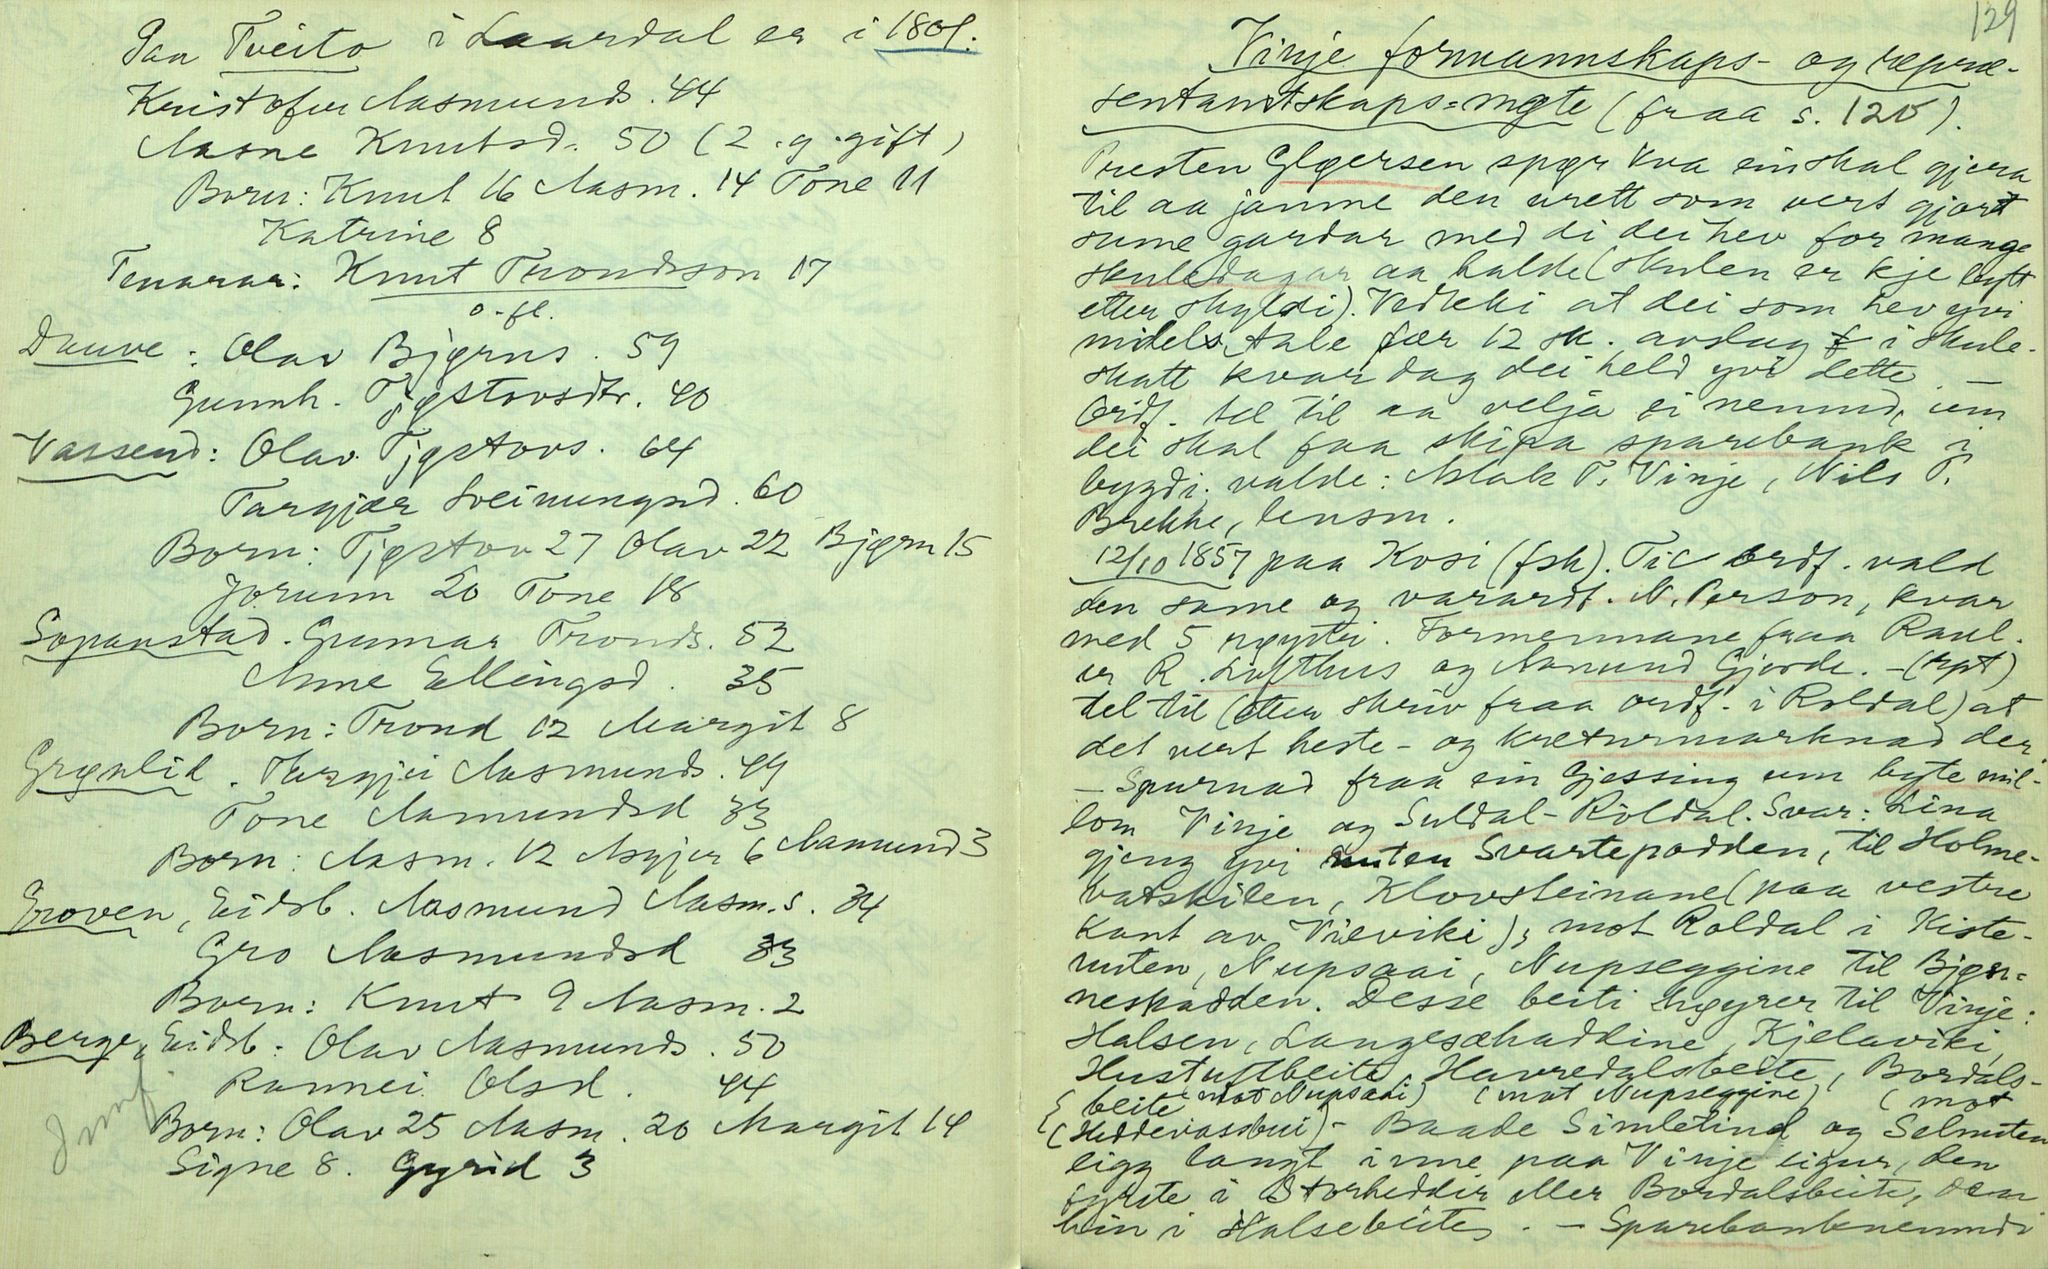 Paa Tveito i Laardal er i 1801.
Kristofer Aasmunds. 44
Aasne Knutsd. 50 (2. g. gift)
Born: Knut 16 Aasm. 14 Tone 11
Katrine 8
Tenarar: Knut Trondsson 17
o. fl.
Dauve: Olav Bjørns. 59
Gunnh. Tjøstovsdtr. 40
Vassend: Olav Tjøstovs. 64
Targjær Sveinungsd. 60
Born: Tjøstov 27 Olav 22 Bjørn 15
Jorunn 20 Tone 18
Sopanstad. Gunnar Tronds. 52
Anne Ellingsd. 35
Born: Trond 12 Margit 8
Grønlid. Targjei Aasmunds. 49
Tone Aamundsd 33
Born: Aasm. 12 Asgjer 6 Aamund 3
Groven, Eidsb. Aasmund Aasm.s. 34
Gro Aasmundsd 33
Born: Knut 9 Aasm. 2
Berge, Eidsb: Olav Aasmunds. 50
Rannei Olsd. 44
Born: Olav 25 Aasm. 20 Margit 14
Signe 8. Gyrid 3
129
Vinje formannskaps- og repræ-
sentantskaps-møte (fraa s. 120).
Presten Gløersen spør kva ein skal gjera
til aa jamne den urett som vert gjort
sume gardar med di dei hev for mange
skuledagar aa halde (skulen er kje bytt
etter skyldi). Vedteki at dei som hev yvi
midels tale fær 12 sk. avslag i skule-
skatt kvar dag dei held yvi dette. —
Ordf. tel til aa velja ei nemnd, um
dei skal faa skipa sparebank i
bygdi; valde: Aslak T. Vinje, Nils T.
Brekke, lensm.
12/10 1857 paa Kosi (fsk). Til ordf. vald
den same og varaordf. N. Person, kvar
med 5 røysti. Formennane fraa Raul.
er R. Lofthus og Aamund Gjerde. - (rpt)
tel til (etter skriv fraa ordf. i Roldal) at
det vert heste- og kreturmarknad der
- Spurnad fraa ein Gjessing um byte mil-
lom Vinje og Suldal-Röldal. Svar: Lina
gjeng yvi nuten Svartepodden, til Holme-
vatskilen, Klovsteinane (paa vestre
kant av Vilviki); mot Roldal i Kiste-
nuten, Nupsaai, Nupseggine til Bjør-
neskadden. Desse beiti høyrer til Vinje:
Halsen, Langesæhaddine, Kjelaviki,
Hustuftbeite, Havredalsbeite, Bordals-
beite (mot Nupsaai) (mot Nupseggine) (mot
Heddevassbui) - Baade Simletind og Selnuten
ligg langt inne paa Vinje eigur, den
fyrste i Storheddir eller Bordalsbeite, den
hin i Halsebeite. — Sparebanknemndi